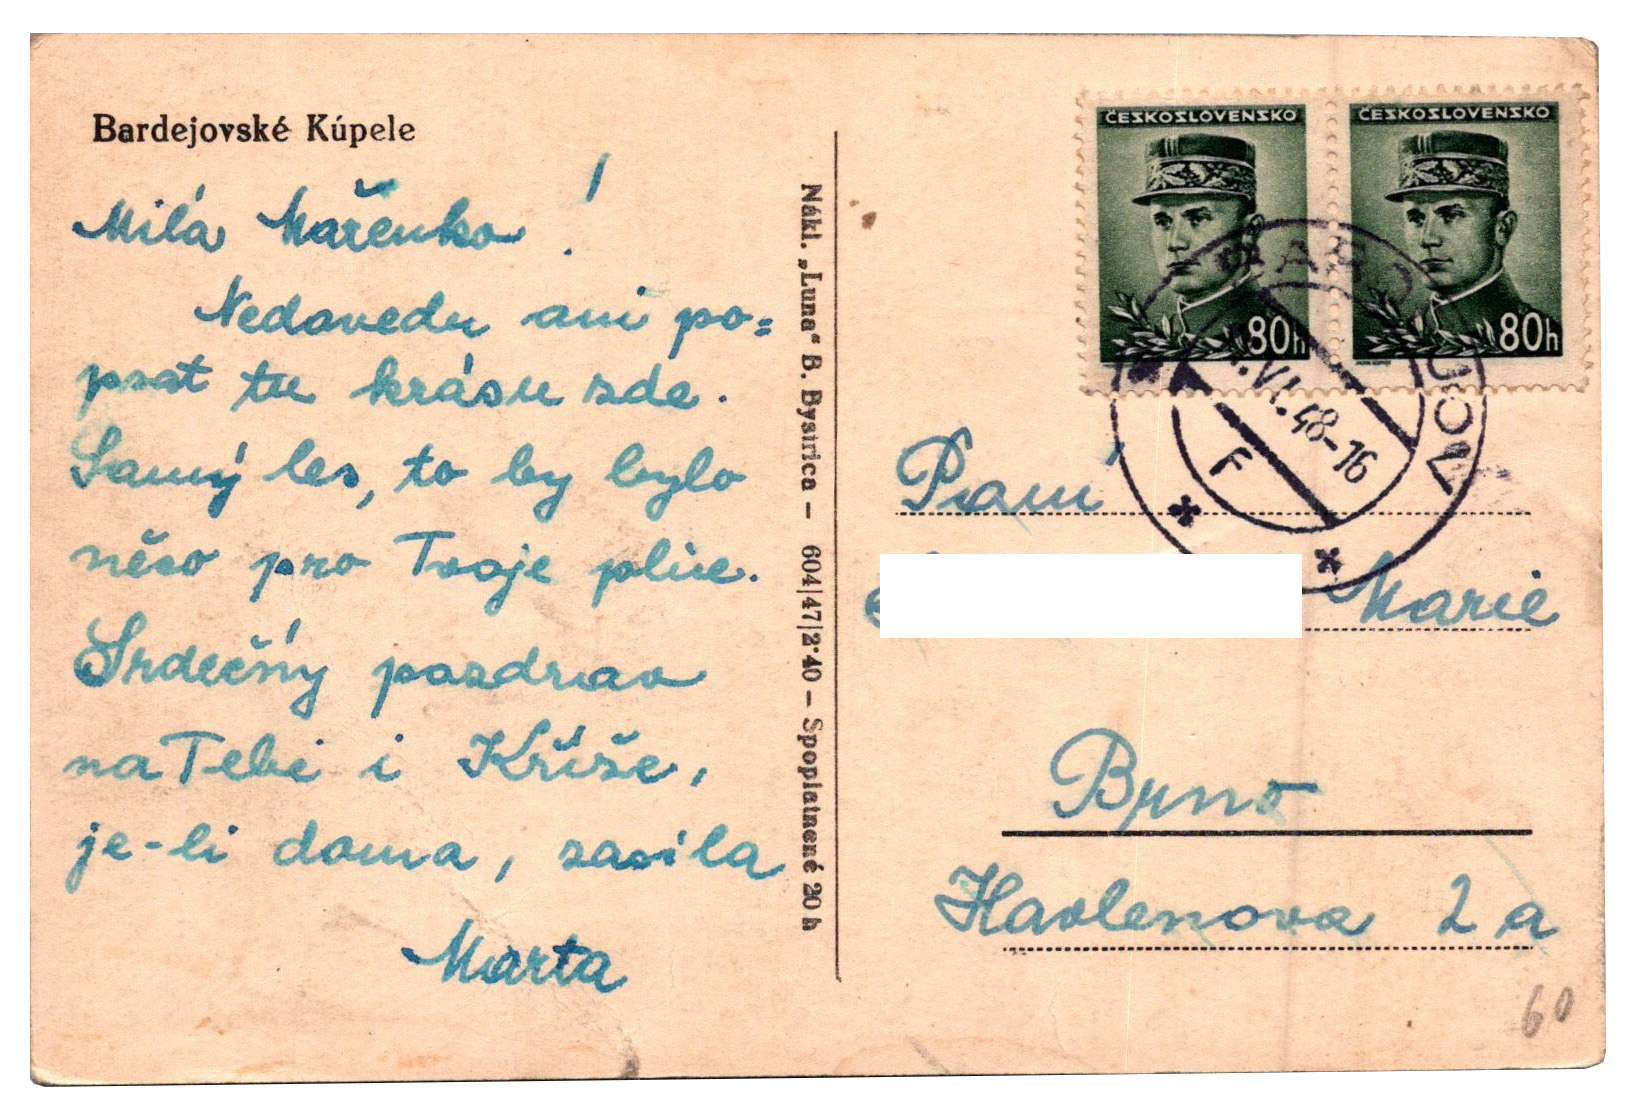 Bardejovské Kúpele
Milá Mařenko!
Nedovedu ani po=
psat tu krásu zde.
Samý les, to by bylo
něco pro Tvoje plíce.
Srdečný pozdrav
na Tebe i Kříže,
je-li doma, zasílá
Marta
Nákl. „Luna“ B. Bystrica – 604|47|2·40 – Spoplatnené 20 h
ČESKOSLOVENSKO
80h
ČESKOSLOVENSKO
80h
BARDEJOV
.VI.48-16
F
Paní
Marie
Brno
Havlenova 2a
60